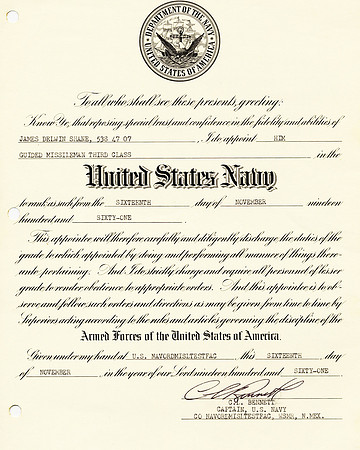 DEPARTMENT OF THE NAVY
UNITED STATES OF AMERICA
To all who shall see these presents, greeting:
Know Ye, that reposing special trust and confidence in the fidelity and abilities of
JAMES DELWIN SHANE, 538 47 07 , I do appoint HIM
GUIDED MISSILEMAN THIRD CLASS in the
United States Navy
to rank as such from the SIXTEENTH day of NOVEMBER nineteen
hundred and SIXTY-ONE .
This appointee will therefore carefully and diligently discharge the duties of the
grade to which appointed by doing and performing all manner of things there-
unto pertaining. And I do strictly charge and require all personnel of lesser
grade to render obedience to appropriate orders. And this appointee is to ob-
serve and follow such orders and directions as may be given from time to time by
Superiors acting according to the rules and articles governing the discipline of the
Armed Forces of the United States of America.
Given under my hand at U.S. NAVORDMISLTESTFAC this SIXTEENTH day
of NOVEMBER , in the year of our Lord nineteen hundred and SIXTY-ONE
C.M. BENNETT
CAPTAIN, U.S. NAVY
CO NAVORDMISITESTFAC, WSMR, N.MEX.